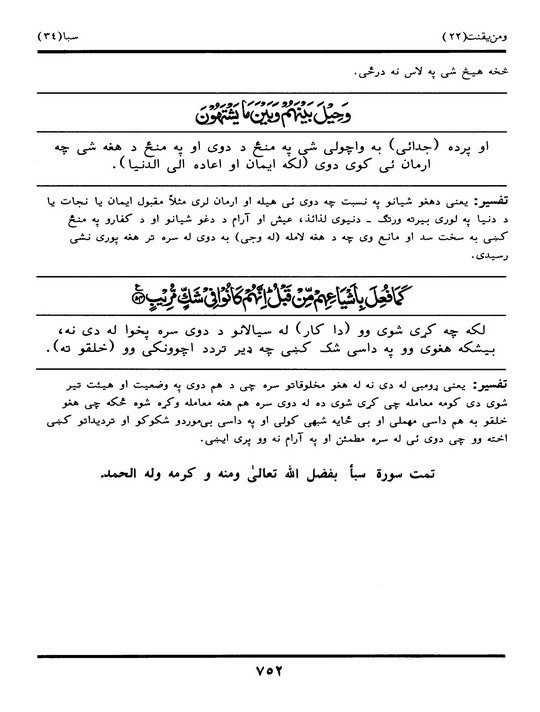 ومن يقنت(٢٢) سبا(٣٤)
څخه هيڅ شی په لاس نه درځی.
وَحِيْلَ بَيْنَهُمْ وَبَيْنَ مَا يَشْتَهُوْنَ
او پرده (جدائی) به واچولی شی په منځ د دوی او په منځ د هغه شی چه
ارمان ئی کوی دوی (لکه ايمان او اعاده الی الدنيا).
تفسير: يعنی دهغو شيانو په نسبت چه دوی ئی هيله او ارمان لری مثلاً مقبول ايمان يا نجات يا
د دنيا په لوری بيرته ورتګ ـ دنيوی لذائذ، عيش او آرام د دغو شيانو او د کفارو په منځ
کښی به سخت سد او مانع وی چه د هغه لامله (له وجی) به دوی له سره تر هغه پوری نشی
رسيدی.
كَمَا فُعِلَ بِاَشْيَاعِهِمْ مِّنْ قَبْلُ اِنَّهُمْ كَانُوْا فِيْ شَكٍّ مُّرِيْبٍ
لکه چه کړی شوی وو (دا کار) له سيالانو د دوی سره پخوا له دی نه،
بيشکه هغوی وو په داسی شک کښی چه ډير تردد اچوونکی وو (خلقو ته).
تفسير: يعنی ړومبی له دی نه له هغو مخلوقاتو سره چی د هم دوی په وضعيت او هيئت تير
شوی دی کومه معامله چی کړی شوی ده له دوی سره هم هغه معامله وکړه شوه ځکه چی هغو
خلقو به هم داسی مهملی او بی ځايه شبهی کولی او په داسی بی‌موردو شکوکو او ترديداتو کښی
اخته وو چی دوی ئی له سره مطمئن او په آرام نه وو پری ايښی.
تمت سورة سبأ بفضل الله تعالیٰ ومنه و کرمه وله الحمد.
٧٥٢